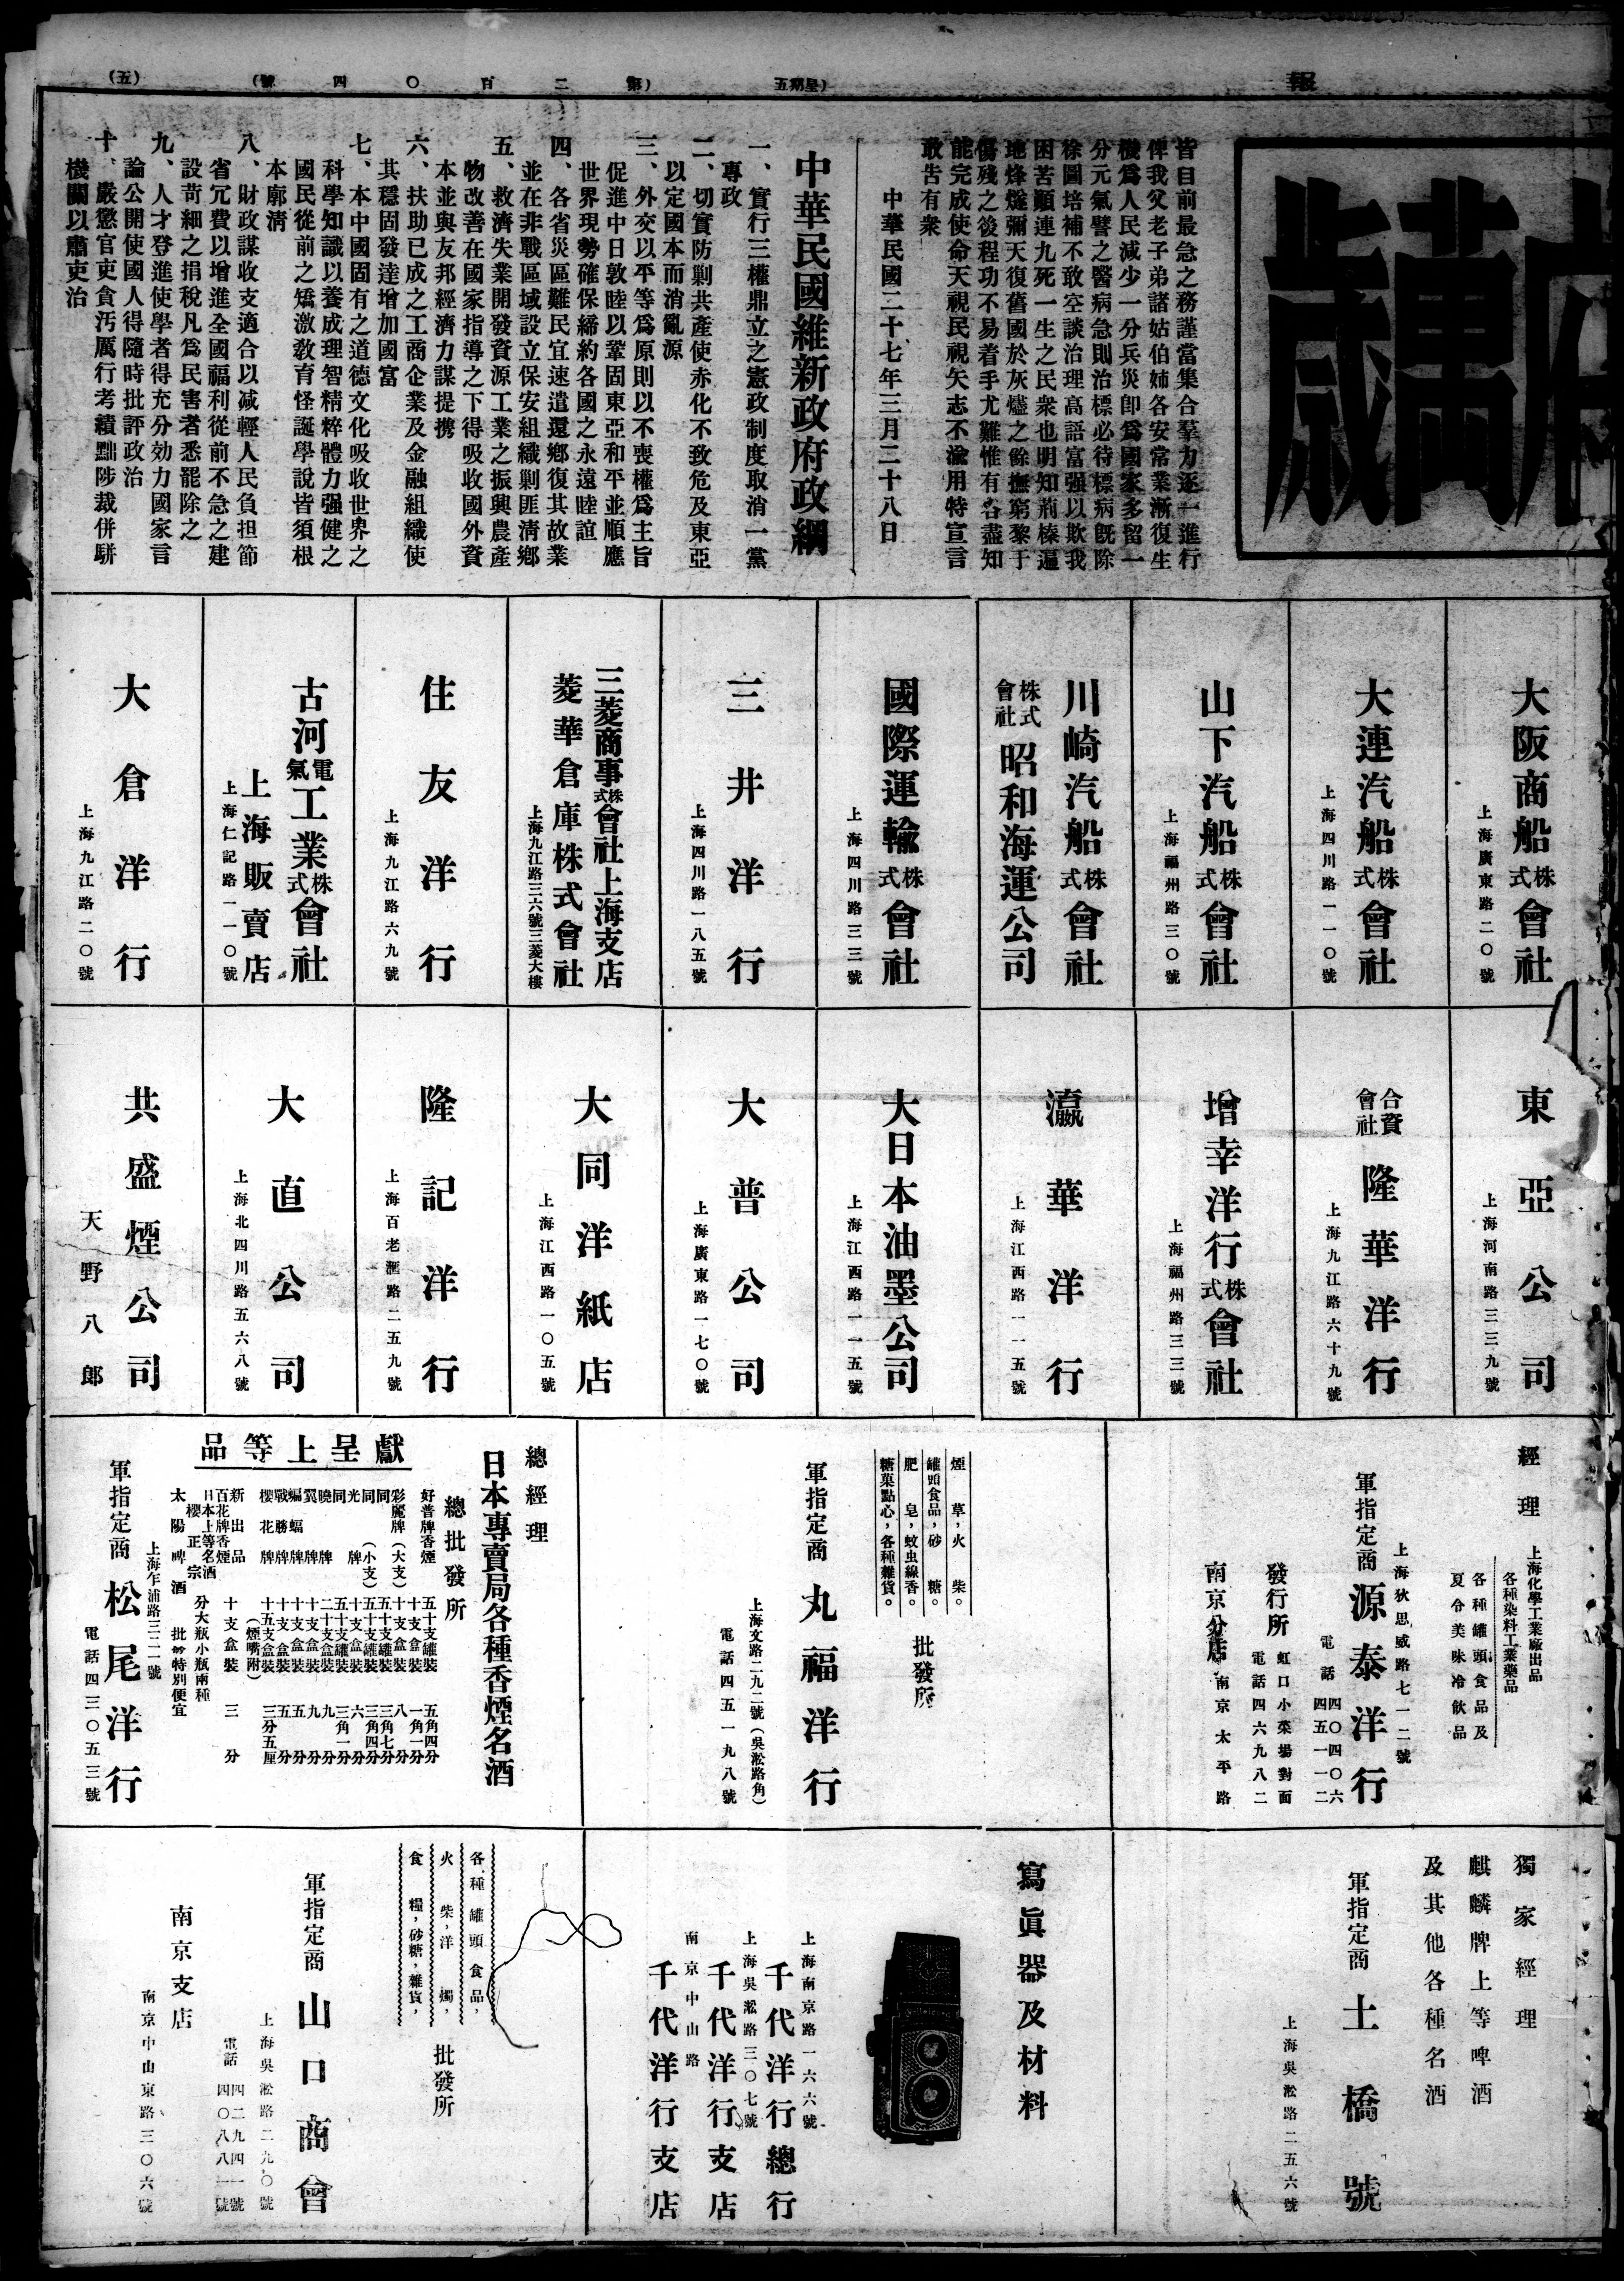 報
(星期五)
(第二百〇四號)
(五)
府萬歲
皆目前最急之務謹當集合羣力逐一進行
俾我父老子弟諸姑伯姊各安常業漸復生
機爲人民減少一分兵災卽爲國家多留一
分元氣譬之醫病急則治標必待標病旣除
徐圖培補不敢空談治理高語富强以欺我
困苦顚連九死一生之民衆也明知荊榛遍
地烽燧彌天復舊國於灰燼之餘撫窮黎于
傷殘之後程功不易着手尤難惟有各盡知
能完成使命天視民視矢志不渝用特宣言
敢告有衆
中華民國二十七年三月二十八日
中華民國維新政府政綱
一、實行三權鼎立之憲政制度取消一黨
專政
二、切實防剿共產使赤化不致危及東亞
以定國本而消亂源
三、外交以平等爲原則以不喪權爲主旨
促進中日敦睦以鞏固東亞和平並順應
世界現勢確保締約各國之永遠睦誼
四、各省災區難民宜速遣還鄉復其故業
並在非戰區域設立保安組織剿匪淸鄉
五、救濟失業開發資源工業之振興農產
物改善在國家指導之下得吸收國外資
本並與友邦經濟力謀提携
六、扶助已成之工商企業及金融組織使
其穩固發達增加國富
七、本中國固有之道德文化吸收世界之
科學知識以養成理智精粹體力强健之
國民從前之矯激敎育怪誕學說皆須根
本廓淸
八、財政謀收支適合以减輕人民負担節
省冗費以增進全國福利從前不急之建
設苛細之捐稅凡爲民害者悉罷除之
九、人才登進使學者得充分効力國家言
論公開使國人得隨時批評政治
十、嚴懲官吏貪汚厲行考績黜陟裁併駢
機關以肅吏治
大阪商船株式會社
上海廣東路二〇號
大連汽船株式會社
上海四川路一一〇號
山下汽船株式會社
上海福州路三〇號
川崎汽船株式會社
株式會社昭和海運公司
國際運輸株式會社
上海四川路三三號
三井洋行
上海四川路一八五號
三菱商事株式會社上海支店
菱華倉庫株式會社
上海九江路三六號三菱大樓
住友洋行
上海九江路六九號
古河電氣工業株式會社
上海販賣店
上海仁記路一一〇號
大倉洋行
上海九江路二〇號
東亞公司
上海河南路三三九號
合資會社隆華洋行
上海九江路六十九號
增幸洋行株式會社
上海福州路三三號
瀛華洋行
上海江西路一一五號
大日本油墨公司
上海江西路一一五號
大普公司
上海廣東路一七〇號
大同洋紙店
上海江西路一〇五號
隆記洋行
上海百老滙路二五九號
大直公司
上海北四川路五六八號
共盛煙公司
天野八郎
經理
上海化學工業廠出品
各種染料工業藥品
各種罐頭食品及
夏令美味冷飲品
上海狄思威路七一二號
軍指定商源泰洋行
電話四〇四〇六
四五一一二
發行所
虹口小菜場對面
電話四六九八二
南京分店
南京太平路
煙草,火柴。
罐頭食品,砂糖。
肥皂,蚊虫線香。
糖菓點心,各種雜貨。
批發所
軍指定商丸福洋行
上海文路二九二號(吳淞路角)
電話四五一九八號
總經理
日本專賣局各種香煙名酒
總批發所
獻呈上等品
好普牌香煙 五十支罐裝 五角四分
彩麗牌(大支) 十支盒裝 一角一分
同 十支盒裝 八分
同 五十支罐裝 三角七分
同(小支) 五十支罐裝 三角四分
光牌 十支盒裝 六分
同 五十支罐裝 三角一分
曉牌 二十支盒裝 九分
翼牌 十支盒裝 九分
蝙蝠牌 十支盒裝 五分
戰勝牌 十支盒裝 五分
櫻花牌 十五支盒裝(煙嘴附) 三分五厘
新出品
百花牌香煙 十支盒裝 三分
日本上等名酒
櫻正宗 分大瓶小瓶兩種
太陽啤酒 批發特別便宜
上海乍浦路三二一號
軍指定商松尾洋行
電話四三〇五三號
獨家經理
麒麟牌上等啤酒
及其他各種名酒
軍指定商土橋號
上海吳淞路二五六號
寫眞器及材料
上海南京路一六六號
千代洋行總行
上海吳淞路三〇七號
千代洋行支店
南京中山路
千代洋行支店
各種罐頭食品,
火柴,洋燭,
食糧,砂糖,雜貨,
批發所
軍指定商山口商會
上海吳淞路二九〇號
電話四二九四一號
四〇八八一號
南京支店
南京中山東路三〇六號